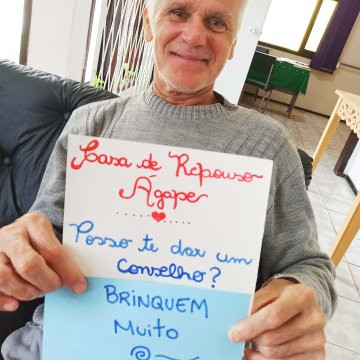 Casa de Repouso
Ágape
Posso te dar um
Conselho?
BRINQUEM
Muito